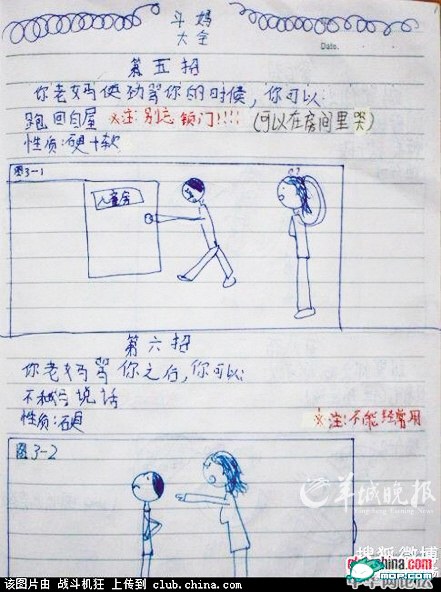 斗妈
大全
Date.
第五招
你老妈使劲骂你的时候，你可以：
跑回自屋 ※注：别忘锁门!!!! (可以在房间里哭)
性质：硬+软
图3-1
儿童房
第六招
你老妈骂你之后，你可以：
不和妈说话
性质：硬 ※注：不能经常用
图3-2
羊城晚报
搜狐微博
club.china.com
该图片由 战斗机狂 上传到 club.china.com